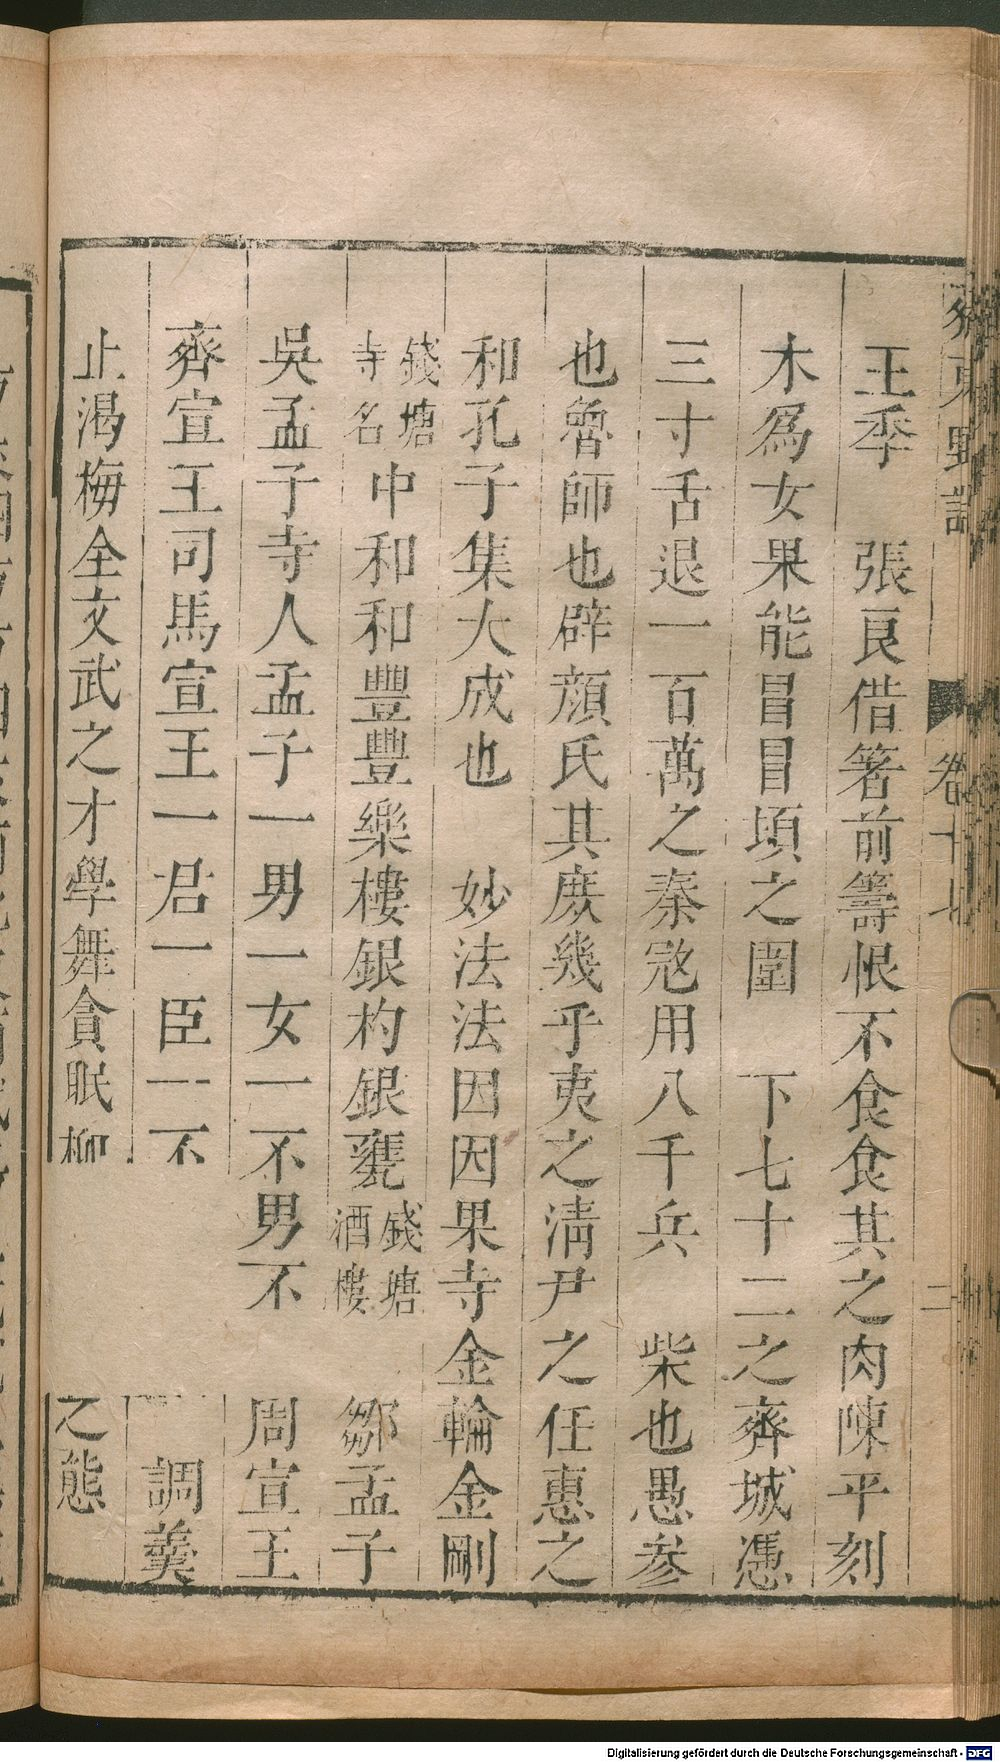 齊東野語 卷十七 二
王季 張良借箸前籌恨不食食其之肉陳平刻
木爲女果能冒冒頊之圍 下七十二之齊城憑
三寸舌退一百萬之秦寇用八千兵 柴也愚參
也魯師也辟顏氏其庶幾乎夷之淸尹之任惠之
和孔子集大成也 妙法法因因果寺金輪金剛
寺錢塘寺名中和和豐豐樂樓銀杓銀甕錢塘酒樓 鄒孟子
吳孟子寺人孟子一男一女一不男不 周宣王
齊宣王司馬宣王一君一臣一不 調羹
止渴梅全文武之才學舞貪眠柳 之態
Digitalisierung gefördert durch die Deutsche Forschungsgemeinschaft - DFG